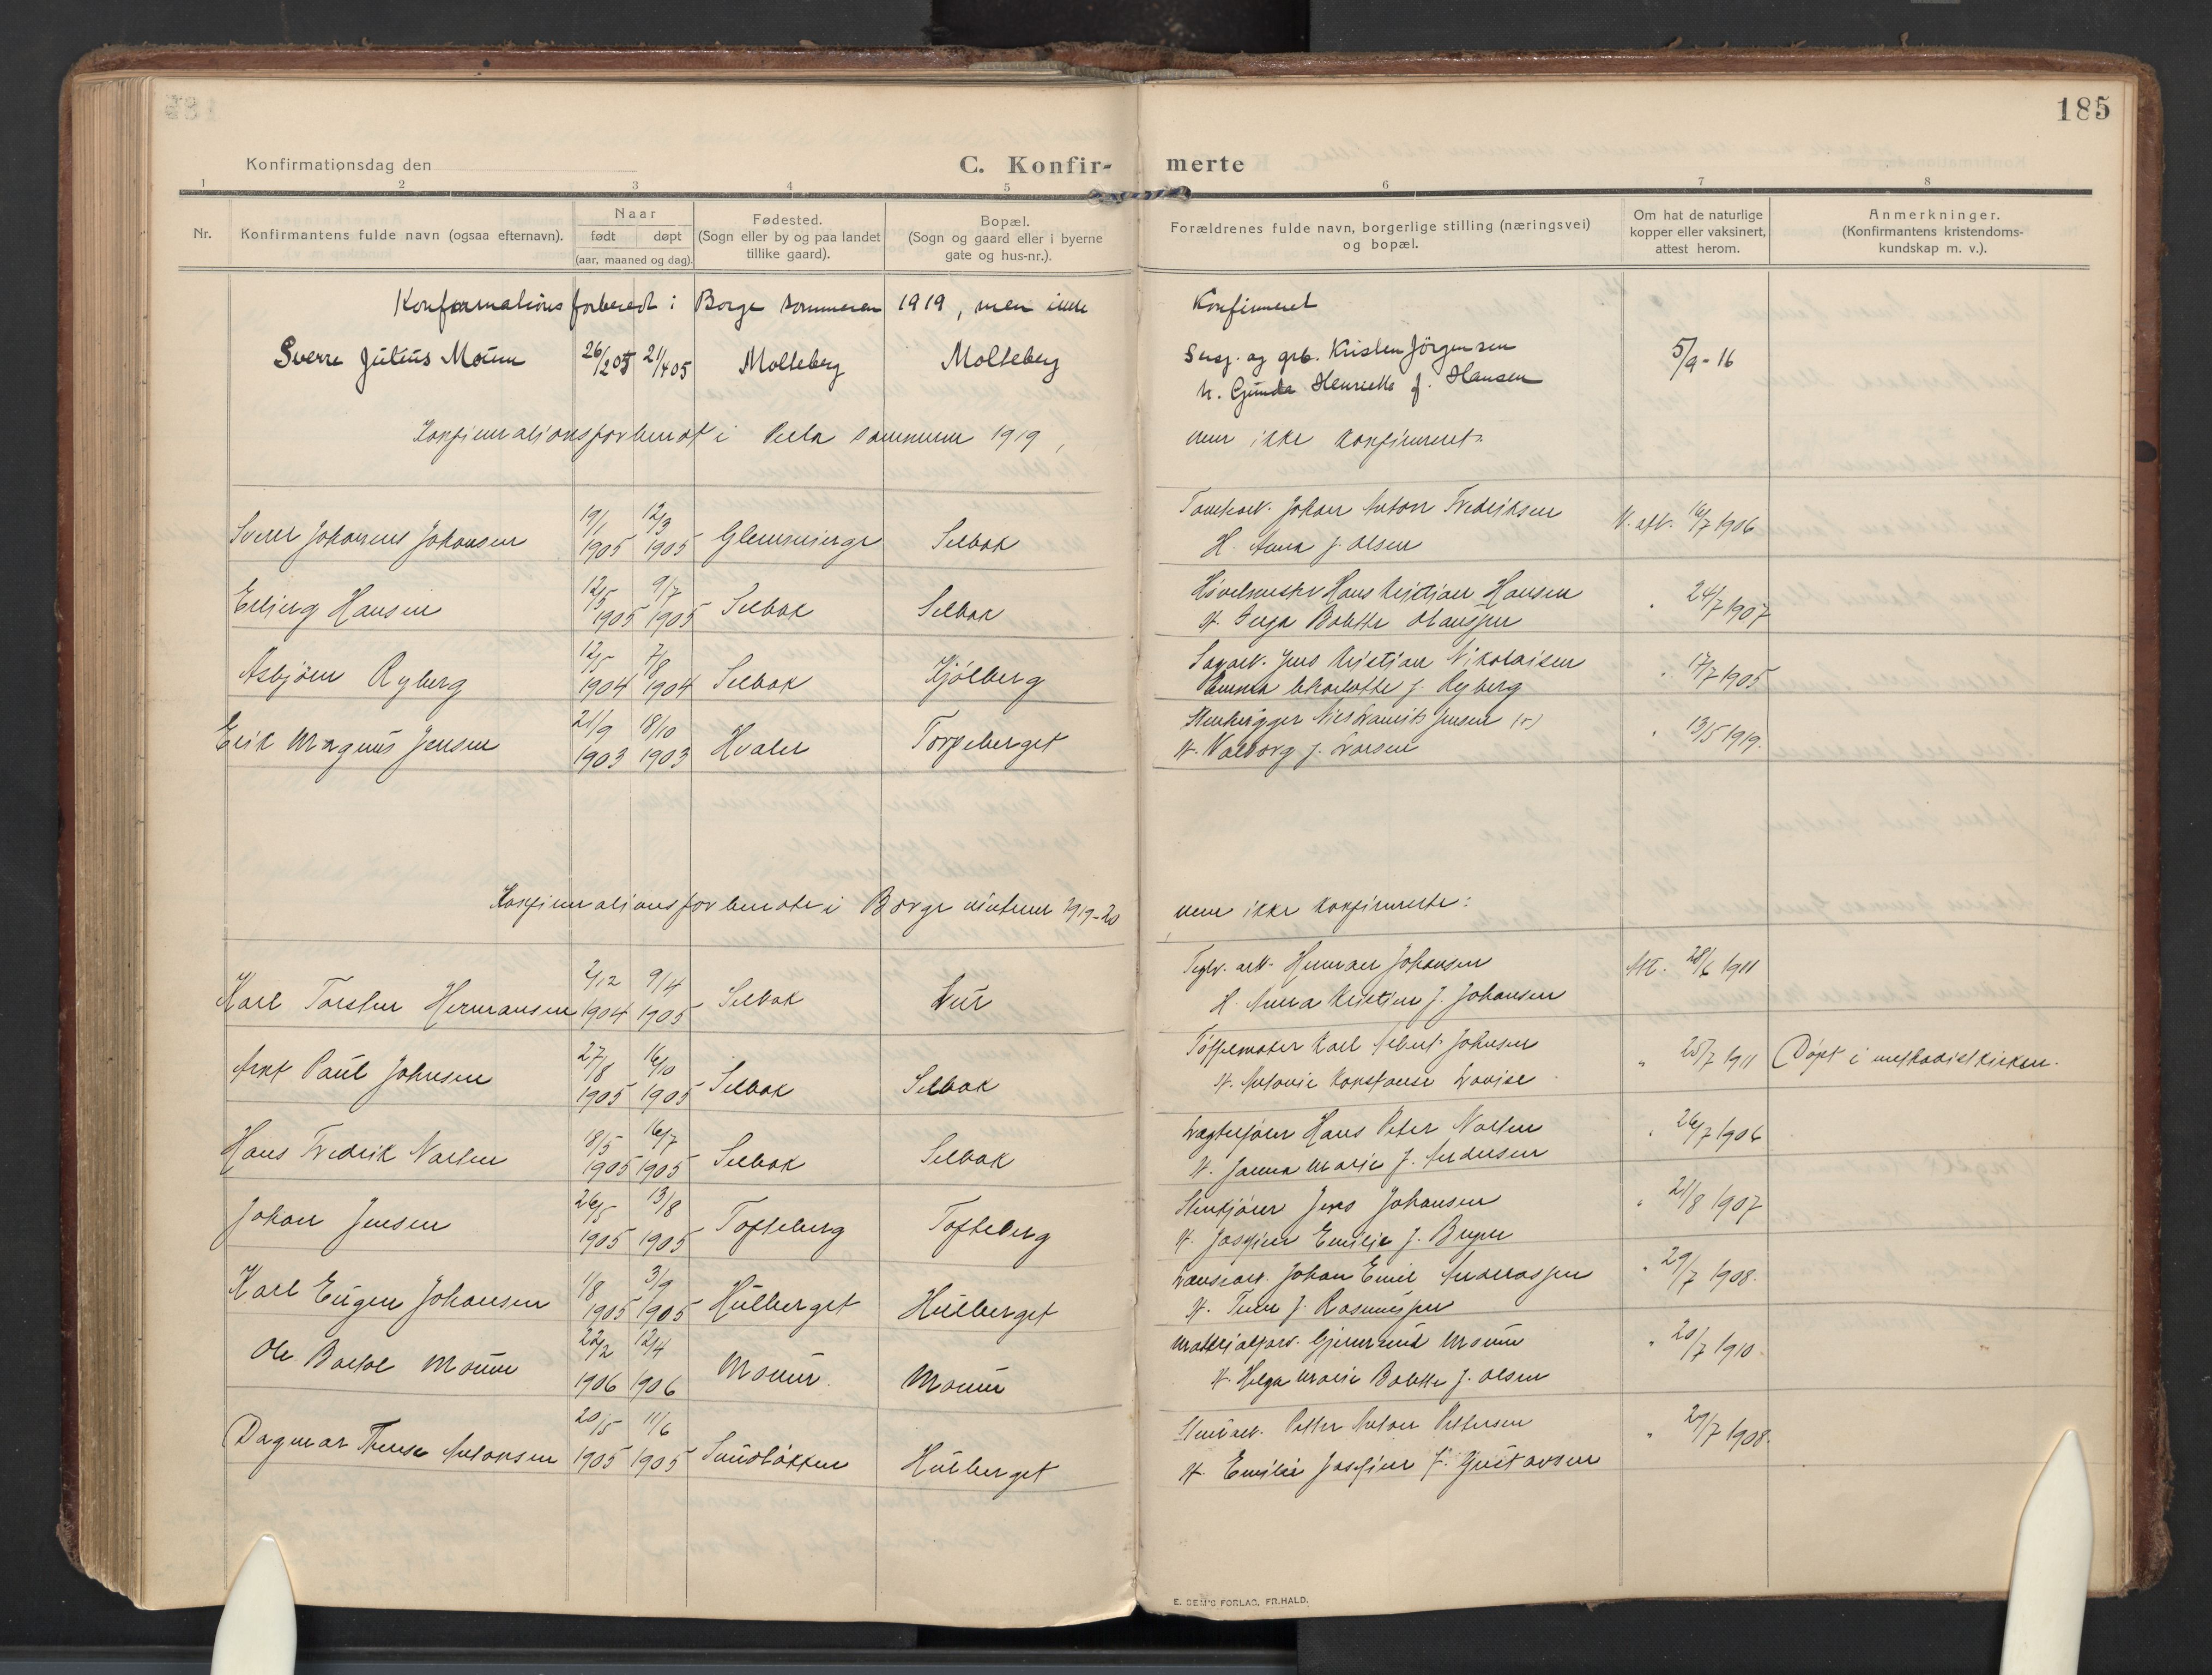 185
Konfirmationsdag den
C. Konfir-
merte
1 2 3 4 5 6 7 8
Nr.
Konfirmantens fulde navn (ogsaa efternavn).
Naar
født døpt
(aar, maaned og dag).
Fødested.
(Sogn eller by og paa landet
tillike gaard).
Bopæl.
(Sogn og gaard eller i byerne
gate og hus-nr.).
Forældrenes fulde navn, borgerlige stilling (næringsvei)
og bopæl.
Om hat de naturlige
kopper eller vaksinert,
attest herom.
Anmerkninger.
(Konfirmantens kristendoms-
kundskap m. v.).
Konfirmationsforberedt i Borge sommeren 1919, men ikke Konfirmeret
Sverre Julius Moum 26/2 05 21/4 05 Molteberg Molteberg Kristen Jörgensen 5/9-16
h. Gunda Henriette f. Hansen
Konfirmationsforberedt i sommeren 1919, men ikke konfirmeret:
Sverre Johannes Johansen 19/1 1905 12/3 1905 Glemminge Selbak Johan Anton Fredriksen V. att. 16/7 1906
H. Anna f. Olsen
Erling Hansen 12/5 1905 9/7 1905 Selbak Selbak Hövelmester Hans Kristian Hansen " 24/7 1907
H. Bolette
Asbjörn Ryberg 12/5 1904 7/8 1904 Selbak Kjölberg Sagarb. Jens Kristian Nikolaisen " 17/7 1905
Emma Charlotte f. Ryberg
Erik Magnus Jensen 21/9 1903 18/10 1903 Hvaler Torpeberget Stenhugger Jensen " 13/5 1919.
H. Valborg f. Larsen
Konfirmationsforberedte i Borge vinteren 1919-20 men ikke konfirmerte:
Karl Torsten Hermansen 2/12 1904 9/4 1905 Selbak Lur Teglv. arb. Herman Johansen Att. 28/6 1911
H. Anna Kristine f. Johansen
Arnt Paul Johnsen 27/8 1905 16/10 1905 Selbak Selbak Töffelmaker Karl Albert Johnsen " 25/7 1911 Döpt i methodistkirken.
H. Antonie Konstanse Lovise
Hans Fredrik Narten 18/5 1905 16/7 1905 Selbak Selbak Hans Peter Narten " 26/7 1906
H. Janna Marie f. Andersen
Johan Jensen 26/5 1905 13/8 1905 Tofteberg Tofteberg Jens Johansen " 21/8 1907
H. Josefine Emilie f.
Karl Eugen Johansen 1/8 1905 3/9 1905 Hulberget Hulberget Johan Emil Andreassen " 29/7 1908.
H. f. Rasmussen
Ole Bartol Moum 22/2 1906 12/4 1906 Moum. Moum Materialforv. Gjermund Moum " 20/7 1910
H. Helga Marie Bolette f. Olsen
Dagmar Therese Antonsen 20/5 1905 11/6 1905 Sundlökken Hulberget Stenarb. Petter Anton Pettersen " 29/7 1908.
H. Emilie Josefine f. Gustavsen
E. SEM'S FORLAG, FR.HALD.